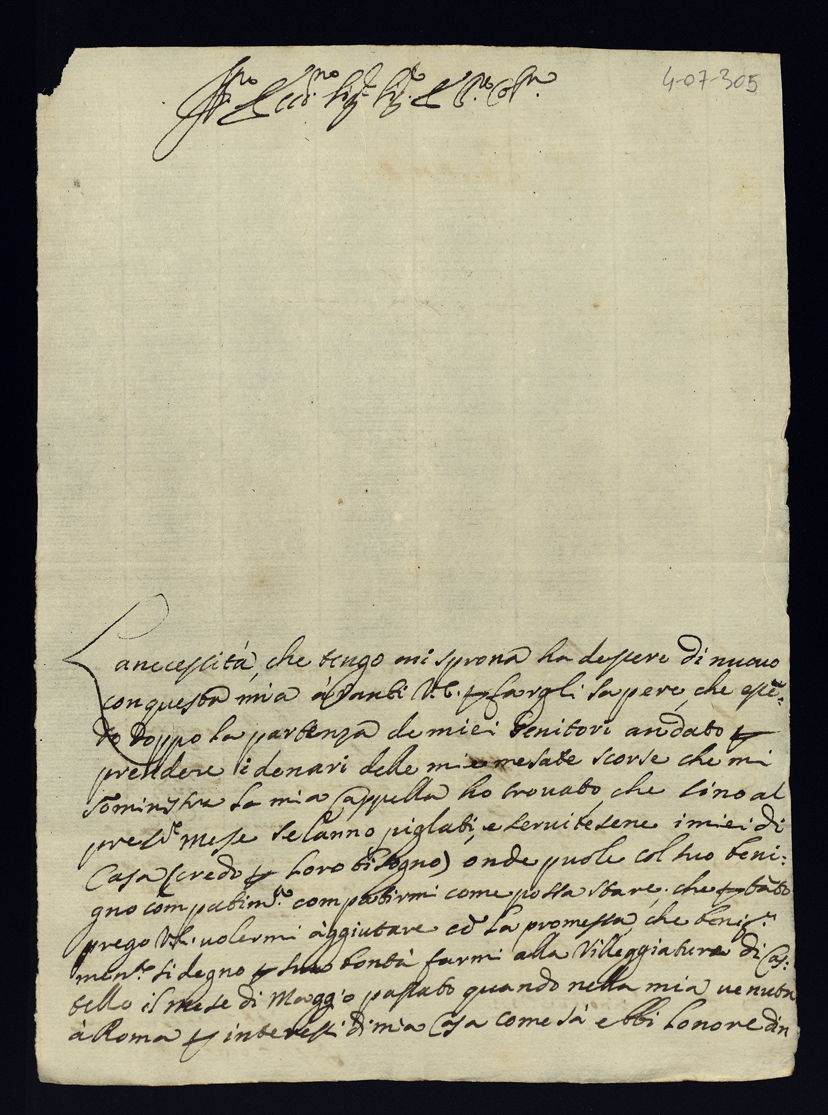 Ill.mo et Ecc.mo Sig.r Sig.r et P.ron Col.mo
4-07-305
La necessità, che tengo mi sprona ha dessere di nuovo
con questa mia à Santi V.E. p fargli sapere, che essẽ-
do doppo la partenza de miei Genitori andato p
prendere i denari delle mie mesate scorse che mi
Soministra la mia Cappella ho trovato, che sino al
pres.te mese selanno pigliati, e servitesene i miei di
Casa (credo p loro bisogno) onde puole col suo beni-
gno compatim.to compatirmi come possa stare, che p tãto
prego V.E. volermi aggiutare cõ la promessa, che benig.a
men.te si degno p sua bontà farmi alla Villeggiatura di Cas-
tello il mese di Maggio passato quando nella mia venuta
à Roma p interessi di mia Casa come sà ebbi honore din